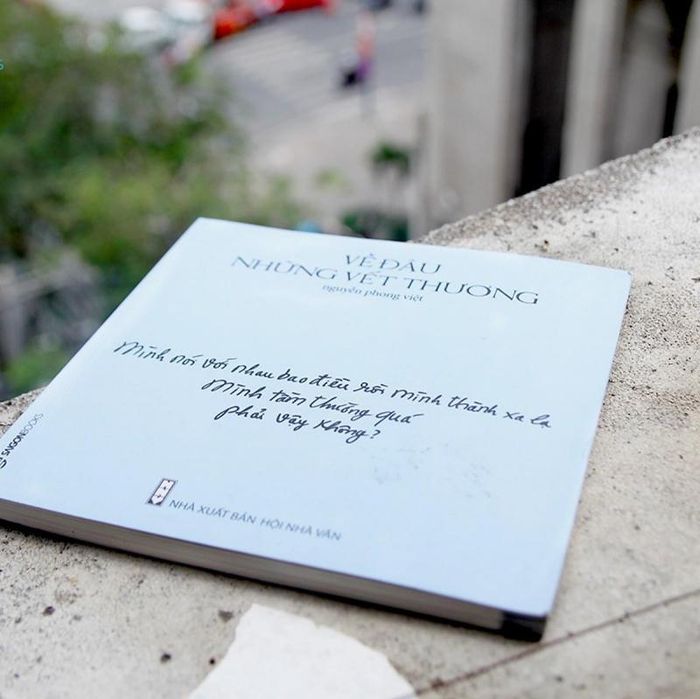 VỀ ĐÂU
NHỮNG VẾT THƯƠNG
nguyễn phong việt
Mình nói với nhau bao điều rồi mình thành xa lạ
Mình tầm thường quá
phải vậy không?
SAIGONBOOKS
NHÀ XUẤT BẢN HỘI NHÀ VĂN